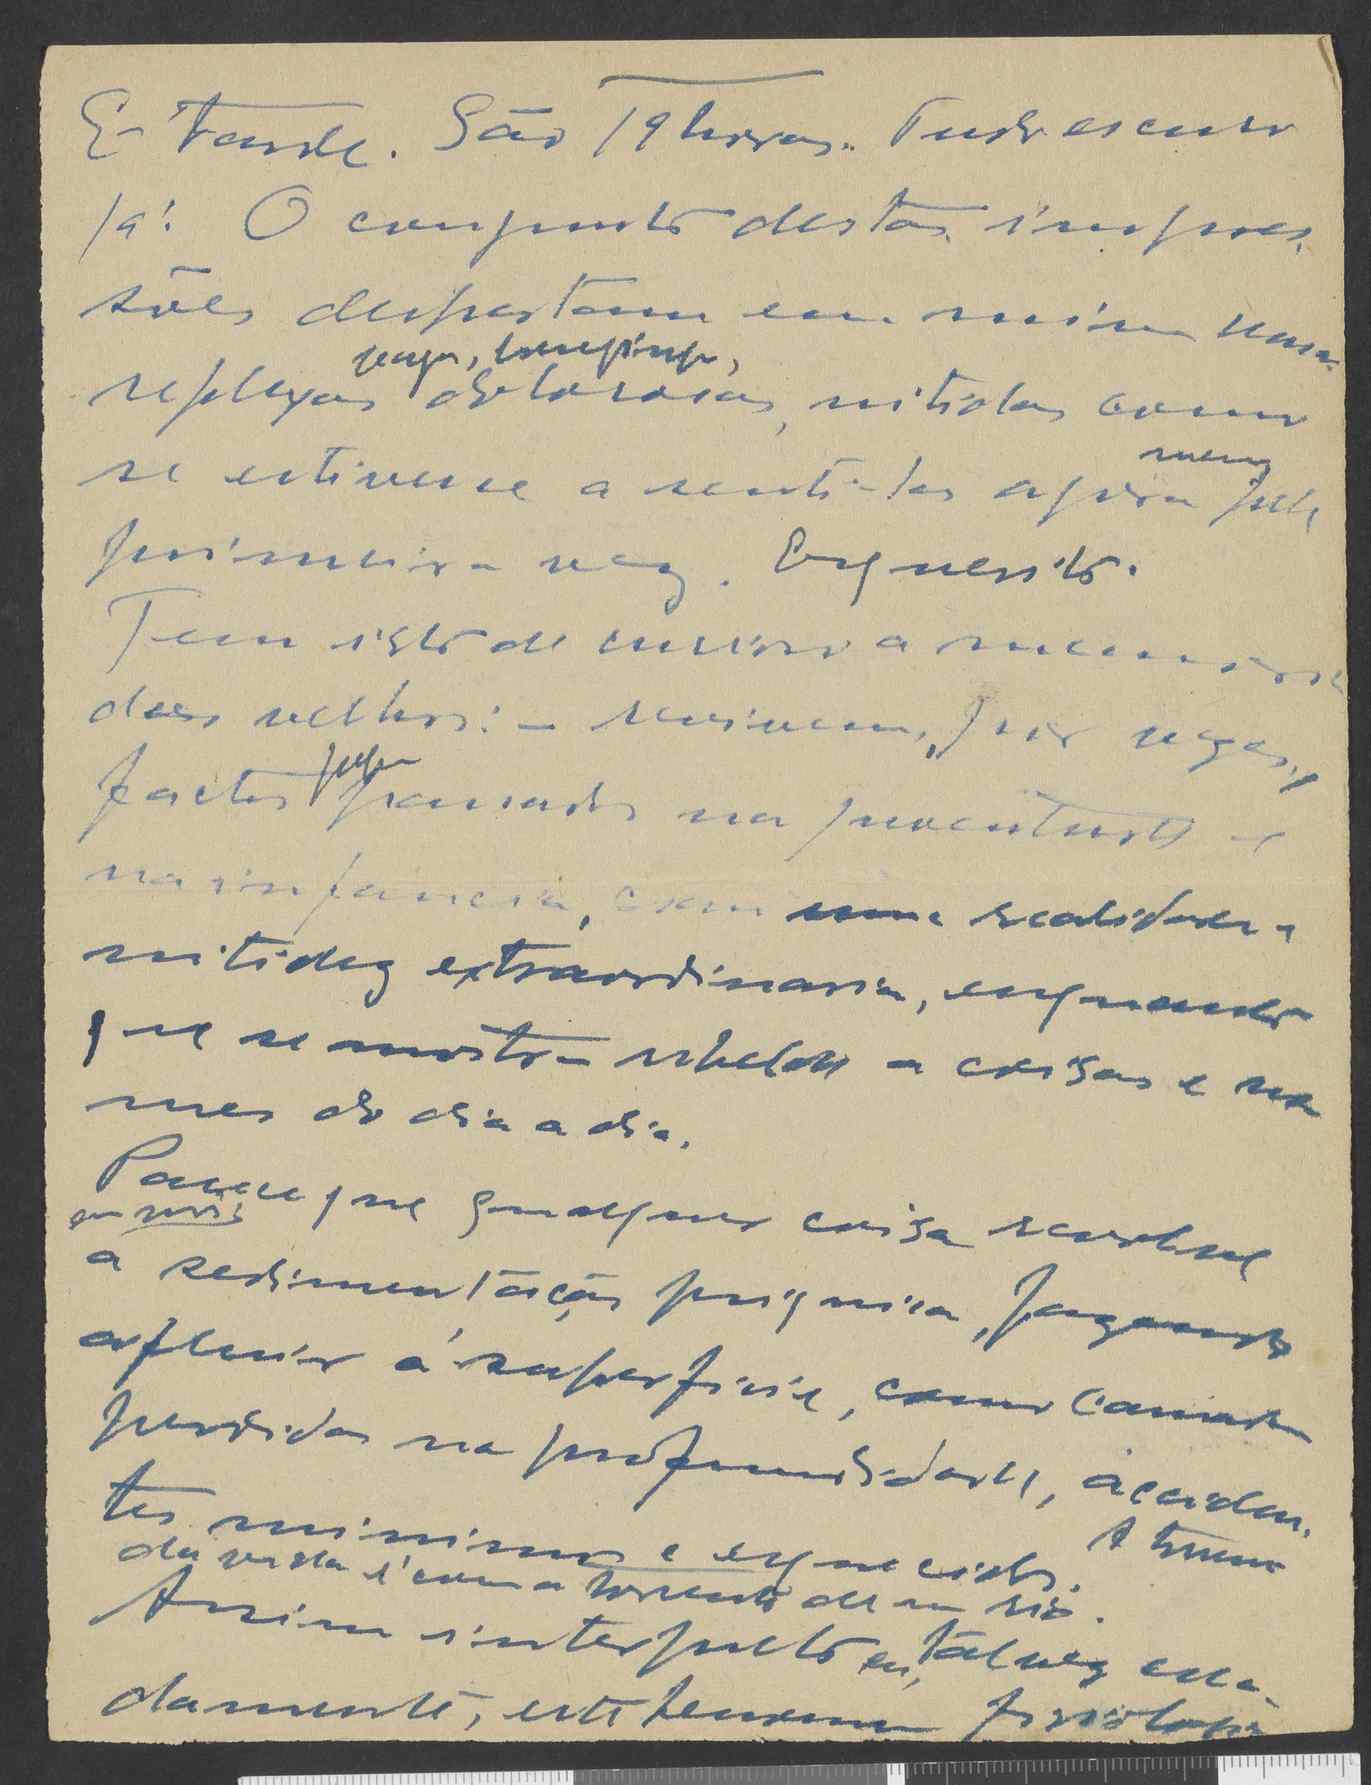 É tarde. São 19 horas. Tudo escuro
já. O conjunto destas impres-
sões despertam em mim
longinqu,
reflexos dolorosas, nitidas como
se estivesse a senti-las agora pela
primeira vez. Exquesito.
Tem isto de curioso a memoria
dos velhos: – revivem, por vezes,
factos passados na juventude e
na infancia, com uma realidade e
nitidez extraordinaria, enquanto
que se mostra rebelde a coisas e no-
mes do dia a dia.
Parece que qualquer coisa revolve
em nós
a sedimentação psiquica, fazendo
afluir á superficie, como camadas
perdidas na profundidade, acciden-
tes minimos e esquecidos. A
da vida é como a torrente de um rio.
Assim interpreto eu, talvez erra-
damente, este fenomeno fisiologi